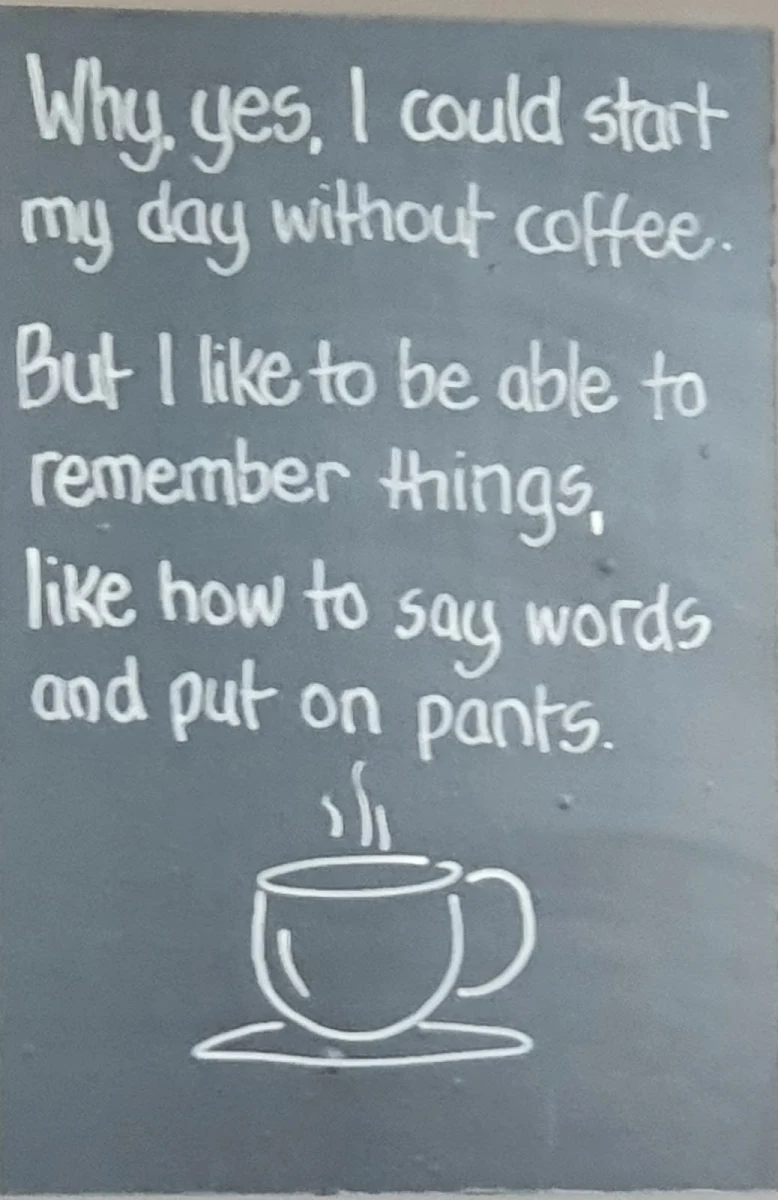 Why, yes, I could start
my day without coffee.
But I like to be able to
remember things,
like how to say words
and put on pants.